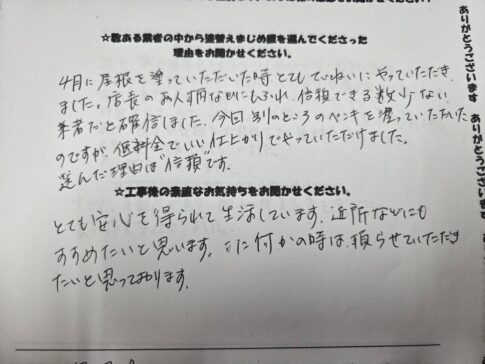 ☆数ある業者の中から塗替えまじめ屋を選んでくださった
理由をお聞かせください。
4月に屋根を塗っていただいた時とてもていねいにやっていただき
ました。店長のお人柄などにもふれ、信頼できる数少ない
業者だと確信しました。今回別のところのペンキを塗っていただいた
のですが、低料金でいい仕上がりでやっていただけました。
選んだ理由は"信頼"です。
☆工事後の素直なお気持ちをお聞かせください。
とても安心を得られて生活しています。近所などにも
すすめたいと思います。また何かの時は、頼らせていただき
たいと思っております。
ありがとうございます ありがとうございます